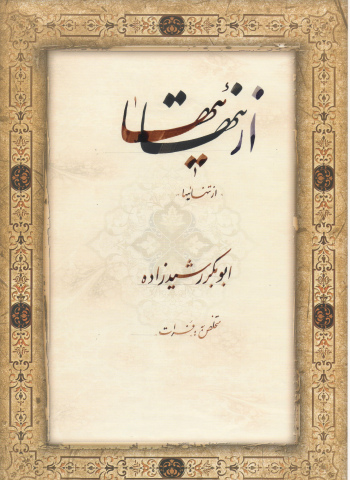 از تنهائیها
از تنهائیها
ابوبکر رشیدزاده
تخلص به فرات